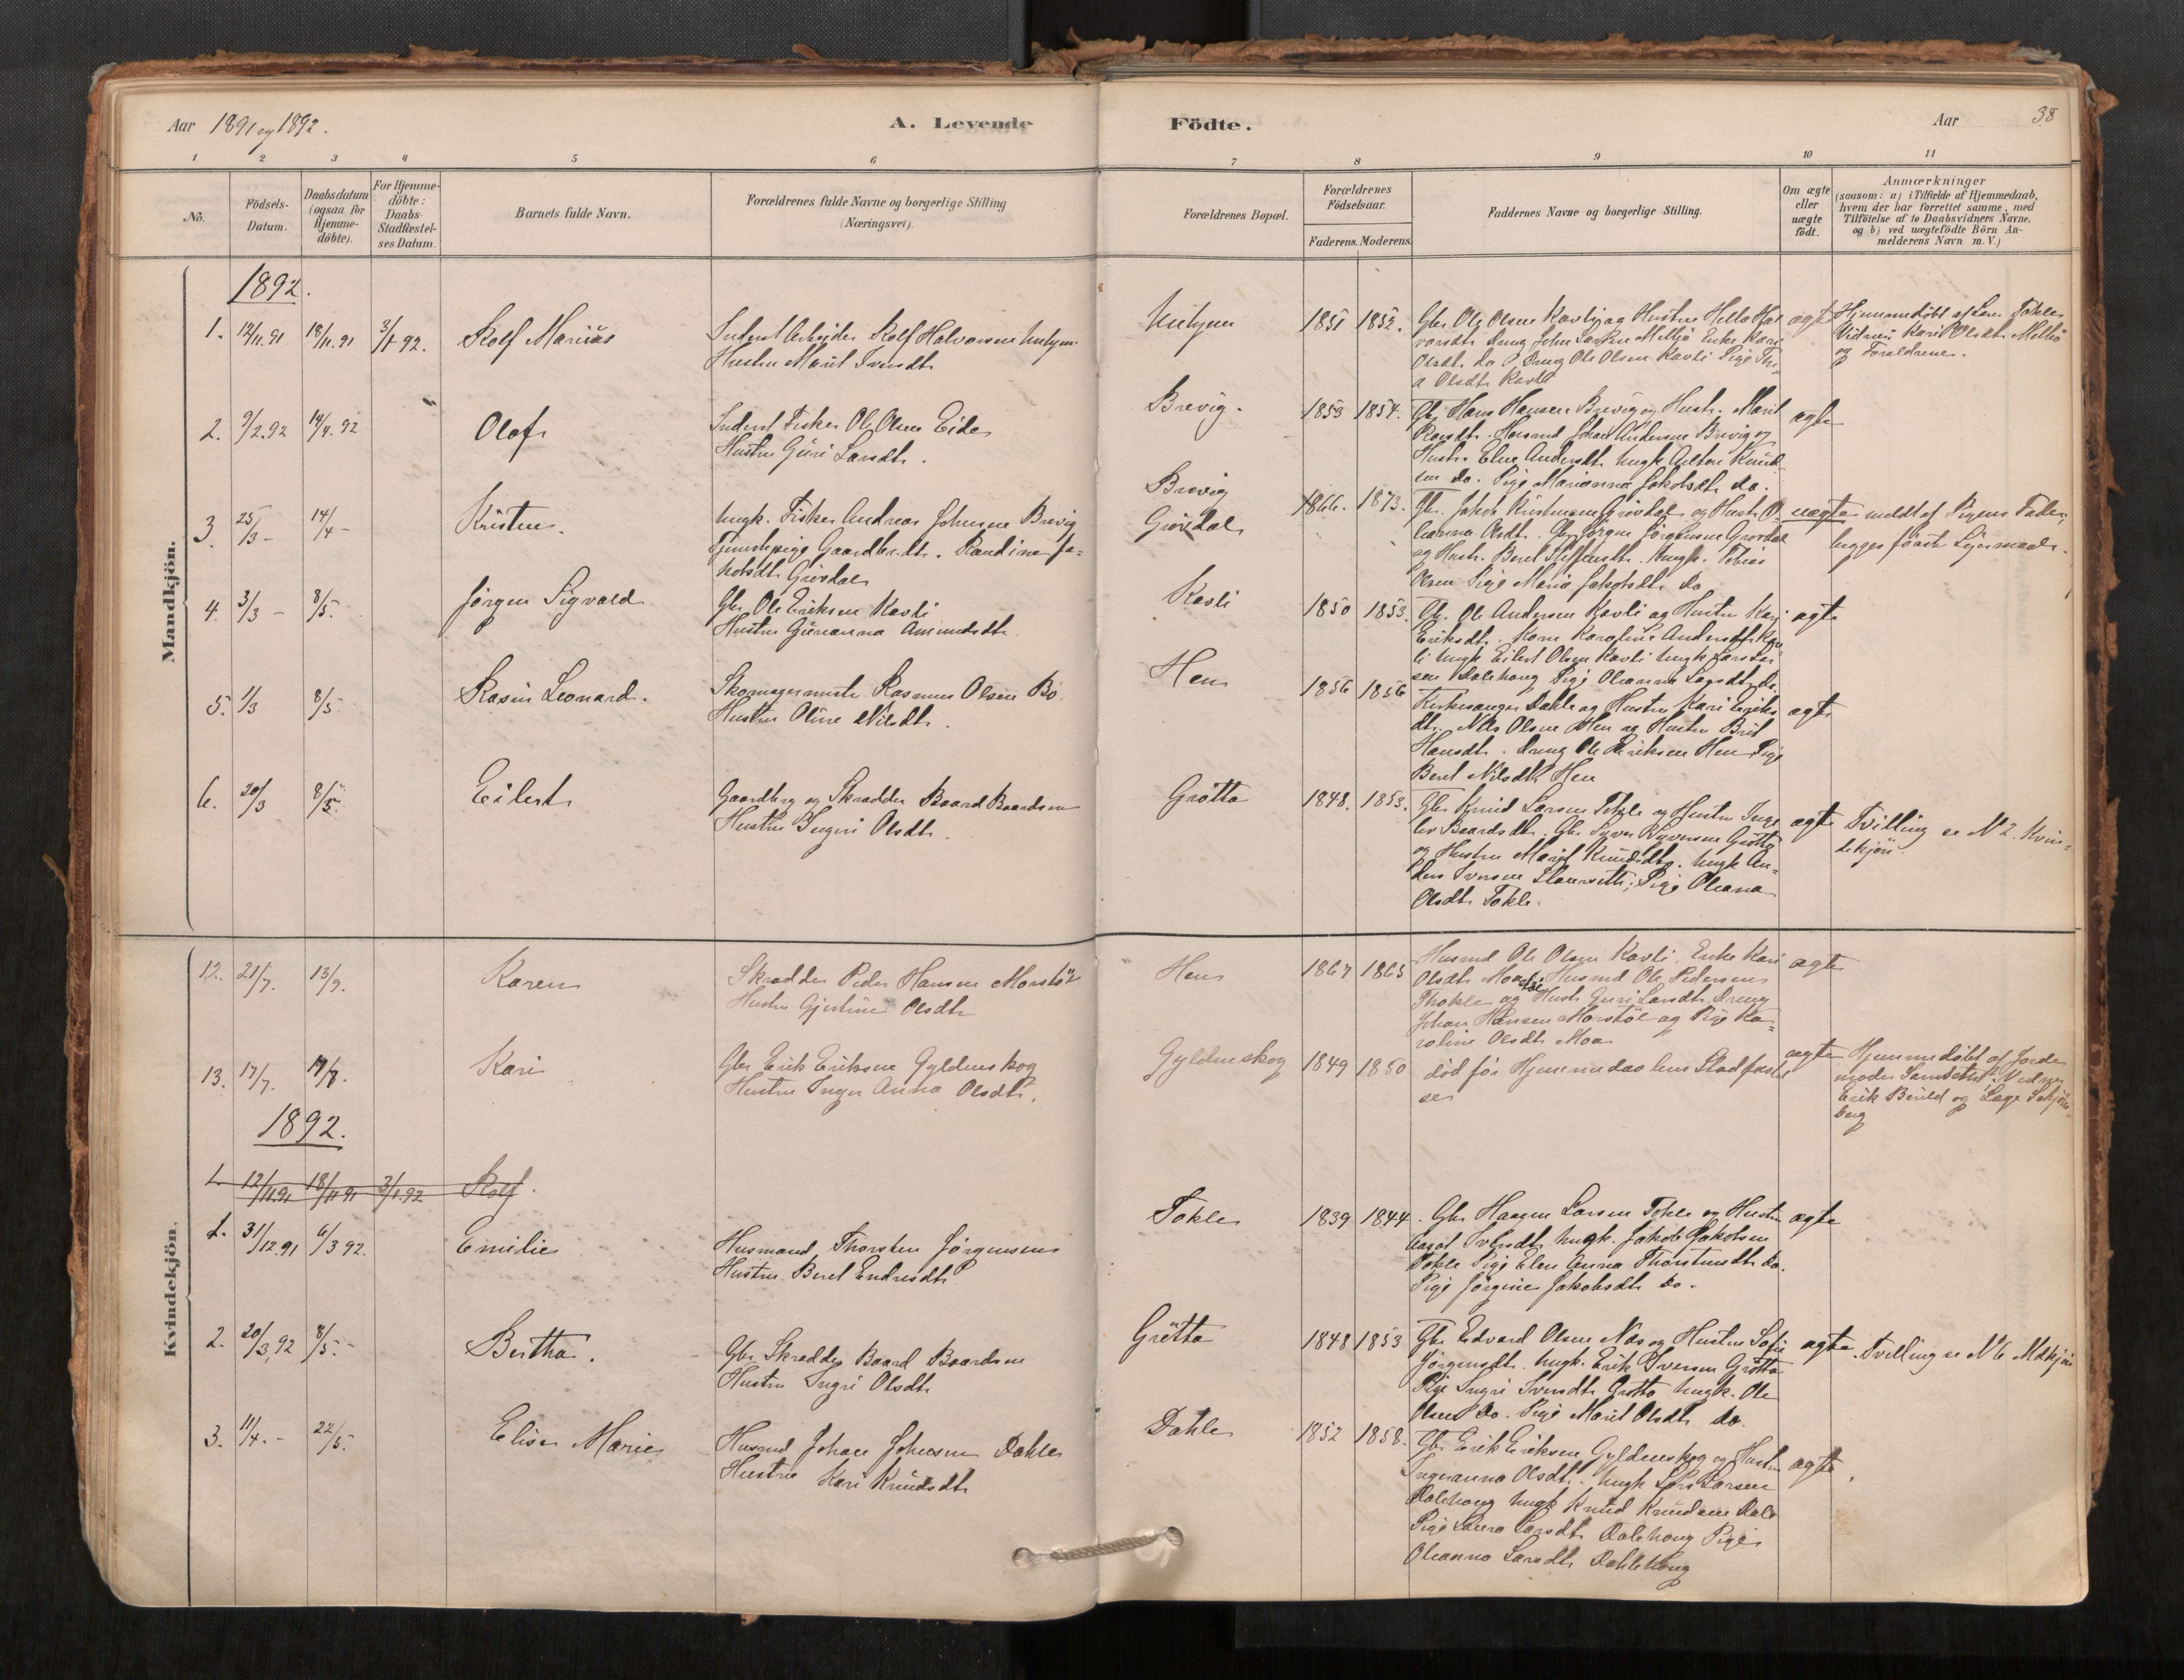 Aar 1891 og 1892.
A. Levende
Födte.
Aar
38
1 2 3 4 5 6 7 8 9 10 11
No.
Födsels-
Datum.
Daabsdatum
(ogsaa for
Hjemme-
döbte).
For Hjemme-
döbte:
Daabs-
Stadfæstel-
ses Datum.
Barnets fulde Navn.
Forældrenes fulde Navne og borgerlige Stilling
(Næringsvei).
Forældrenes Bopæl.
Forældrenes
Födselsaar.
Faderens. Moderens.
Faddernes Navne og borgerlige Stilling.
Om ægte
eller
uægte
födt.
Anmærkninger
(saasom: a) i Tilfælde af Hjemmedaab,
hvem der har forrettet samme, med
Tilföielse af to Daabsvidners Navne.
og b) ved uægtefödte Börn An-
melderens Navn m. V.)
Mandkjön.
1892.
1. 12/11.91 18/11.91 3/1 92. Rolf Marius
Inderst Arbejder Rolf Halvorsen
Hustru Marit Iversdt.
1851 1852.
Gbr Ole Olsen Kavli og Hustru
Olsdt. do Dreng Ole Olsen Kavli Pige
a Olsdt. Kavli
ægte
Hjemmedöbt af Lars Tokle
Vidner Kari Olsdt. Melbö
og Forældrene.
2. 9/2.92 14/4.92 Olaf
Inderst Fisker Ole Olsen Eide
Hustru Guri Larsdt.
Brevig. 1853 1854.
Gbr Hans Hansen Brevig og Hustr. Marit
Husmd Johan Andersen Brevig og
Hustr. Elen Andersdt. Ungk. Anton Knud-
sen do. Pige Marianna Jakobsdt. do.
ægte
3. 25/3 - 14/4 - Kristen.
Ungk. Fisker Andreas Johnsen Brevig
Tjenestepige Gaardbr.dt. Randine Ja-
kobsdt. Grövdal
Brevig
Grövdal
1866. 1873.
Gbr. Jakob Kristensen Grövdal og Hustr. O-
leanna Olsdt. Gbr Jörgen Jörgensen Grövdal
og Hustr. Beret Steffensdt. Ungk. Tobias
Olsen Pige Maria Jakobsdt. do
uægte
meldt af Pigens Fader,
begges förste Leiermaal.
4. 3/3 - 8/5. Jörgen Sigvald
Gbr Ole Eriksen Kavli
Hustru Gurianna Amundsdt.
Kavli 1850 1853.
Gbr. Ole Andersen Kavli og Hustru Kari
Eriksdt. Kone Karoline Andersdt. Kav-
li Ungk Eilert Olsen Kavli Ungk Lars
sen Dalehaug Pige Oleanna Larsdt. do.
ægte
5. 1/3 8/5 Rasmus Leonard.
Skomagermester Rasmus Olsen Bo.
Hustru Oline Nilsdt.
Hen 1856 1856
Kirkesanger Dahle og Hustru Kari Eriks
dt. Nils Olsen Hen og Hustru Brit
Hansdt. Dreng Ole Eriksen Hen Pige
Beret Nilsdt. Hen
ægte
6. 20/3 8/5 Eilert
Gaardbrg og Skrædder Baard Baardsen
Hustru Ingri Olsdt.
Grötta 1848. 1853.
Gbr Knud Larsen Tokle og Hustru Inge
lev Baardsdt. Gbr Syver Syversen Grötta
og Hustru Marit Knudsdt. Ungk An-
ders Iversen Pige Oleana
Olsdt. Tokle.
ægte
Tvilling se N 2. Kvin-
dekjön.
Kvindekjön.
12. 21/7. 13/9. Karen
Skrædder Peder Hansen Morstöl
Hustru Gjertine Olsdt.
Hen 1867 1865
Husmd Ole Olsen Kavli, Enke Kari
Olsdt. Husmd Ole Pedersen
Thokle og Hustr Guri Larsdt. Dreng
Johan Hansen Morstöl og Pige Ka-
roline Olsdt. Moa
ægte
13. 17/7. 19/7. Kari
Gbr Erik Eriksen Gyldenskog
Hustru Inger Anna Olsdt.
Gyldenskog 1849 1850
död för Hjemmedaabens Stadfæstel
ses
ægte
Hjemmedöbt af Jorde
moder Vidner
Erik Berild og Lage Schjöl-
berg
1892.
1. 12/11.91 18/11 91 3/1.92 Rolf.
1. 31/12.91 6/3 92. Emilie
Husmand Thorsten Jörgensen
Hustru Beret Endresdt.
Tokle 1839 1844.
Gbr Haagen Larsen Tokle og Hustru
Aagot Ivarsdt. Ungk. Jakob Jakobsen
Tokle Pige Elen Anna Thorstensdt. do.
Pige Jörgine Jakobsdt. do.
ægte
2. 20/3.92 8/5.- Bertha.
Gbr Skrædder Baard Baardsen
Hustru Ingri Olsdt.
Grötta 1848 1853
Gbr Edvard Olsen Næs og Hustru Sofie
Jörgensdt. Ungk. Erik Iversen Grötta
Pige Ingri Iversdt. Grötta Ungk. Ole
Olsen do. Pige Marit Olsdt. do.
ægte
Tvilling se N 6 Mdkjön
3. 11/4.- 22/5. Elise Marie
Husmd Johan Johnsen Dahle
Hustru Kari Knudsdt.
Dahle 1852 1858.
Gbr Erik Eriksen Gyldenskog og Hustru
Ingeranna Olsdt. Ungk Lars Larsen
Dalehaug Ungk Knud Knudsen Dale
Pige Laura Larsdt. Dalehaug Pige
Oleanna Larsdt. Dahlehaug
ægte